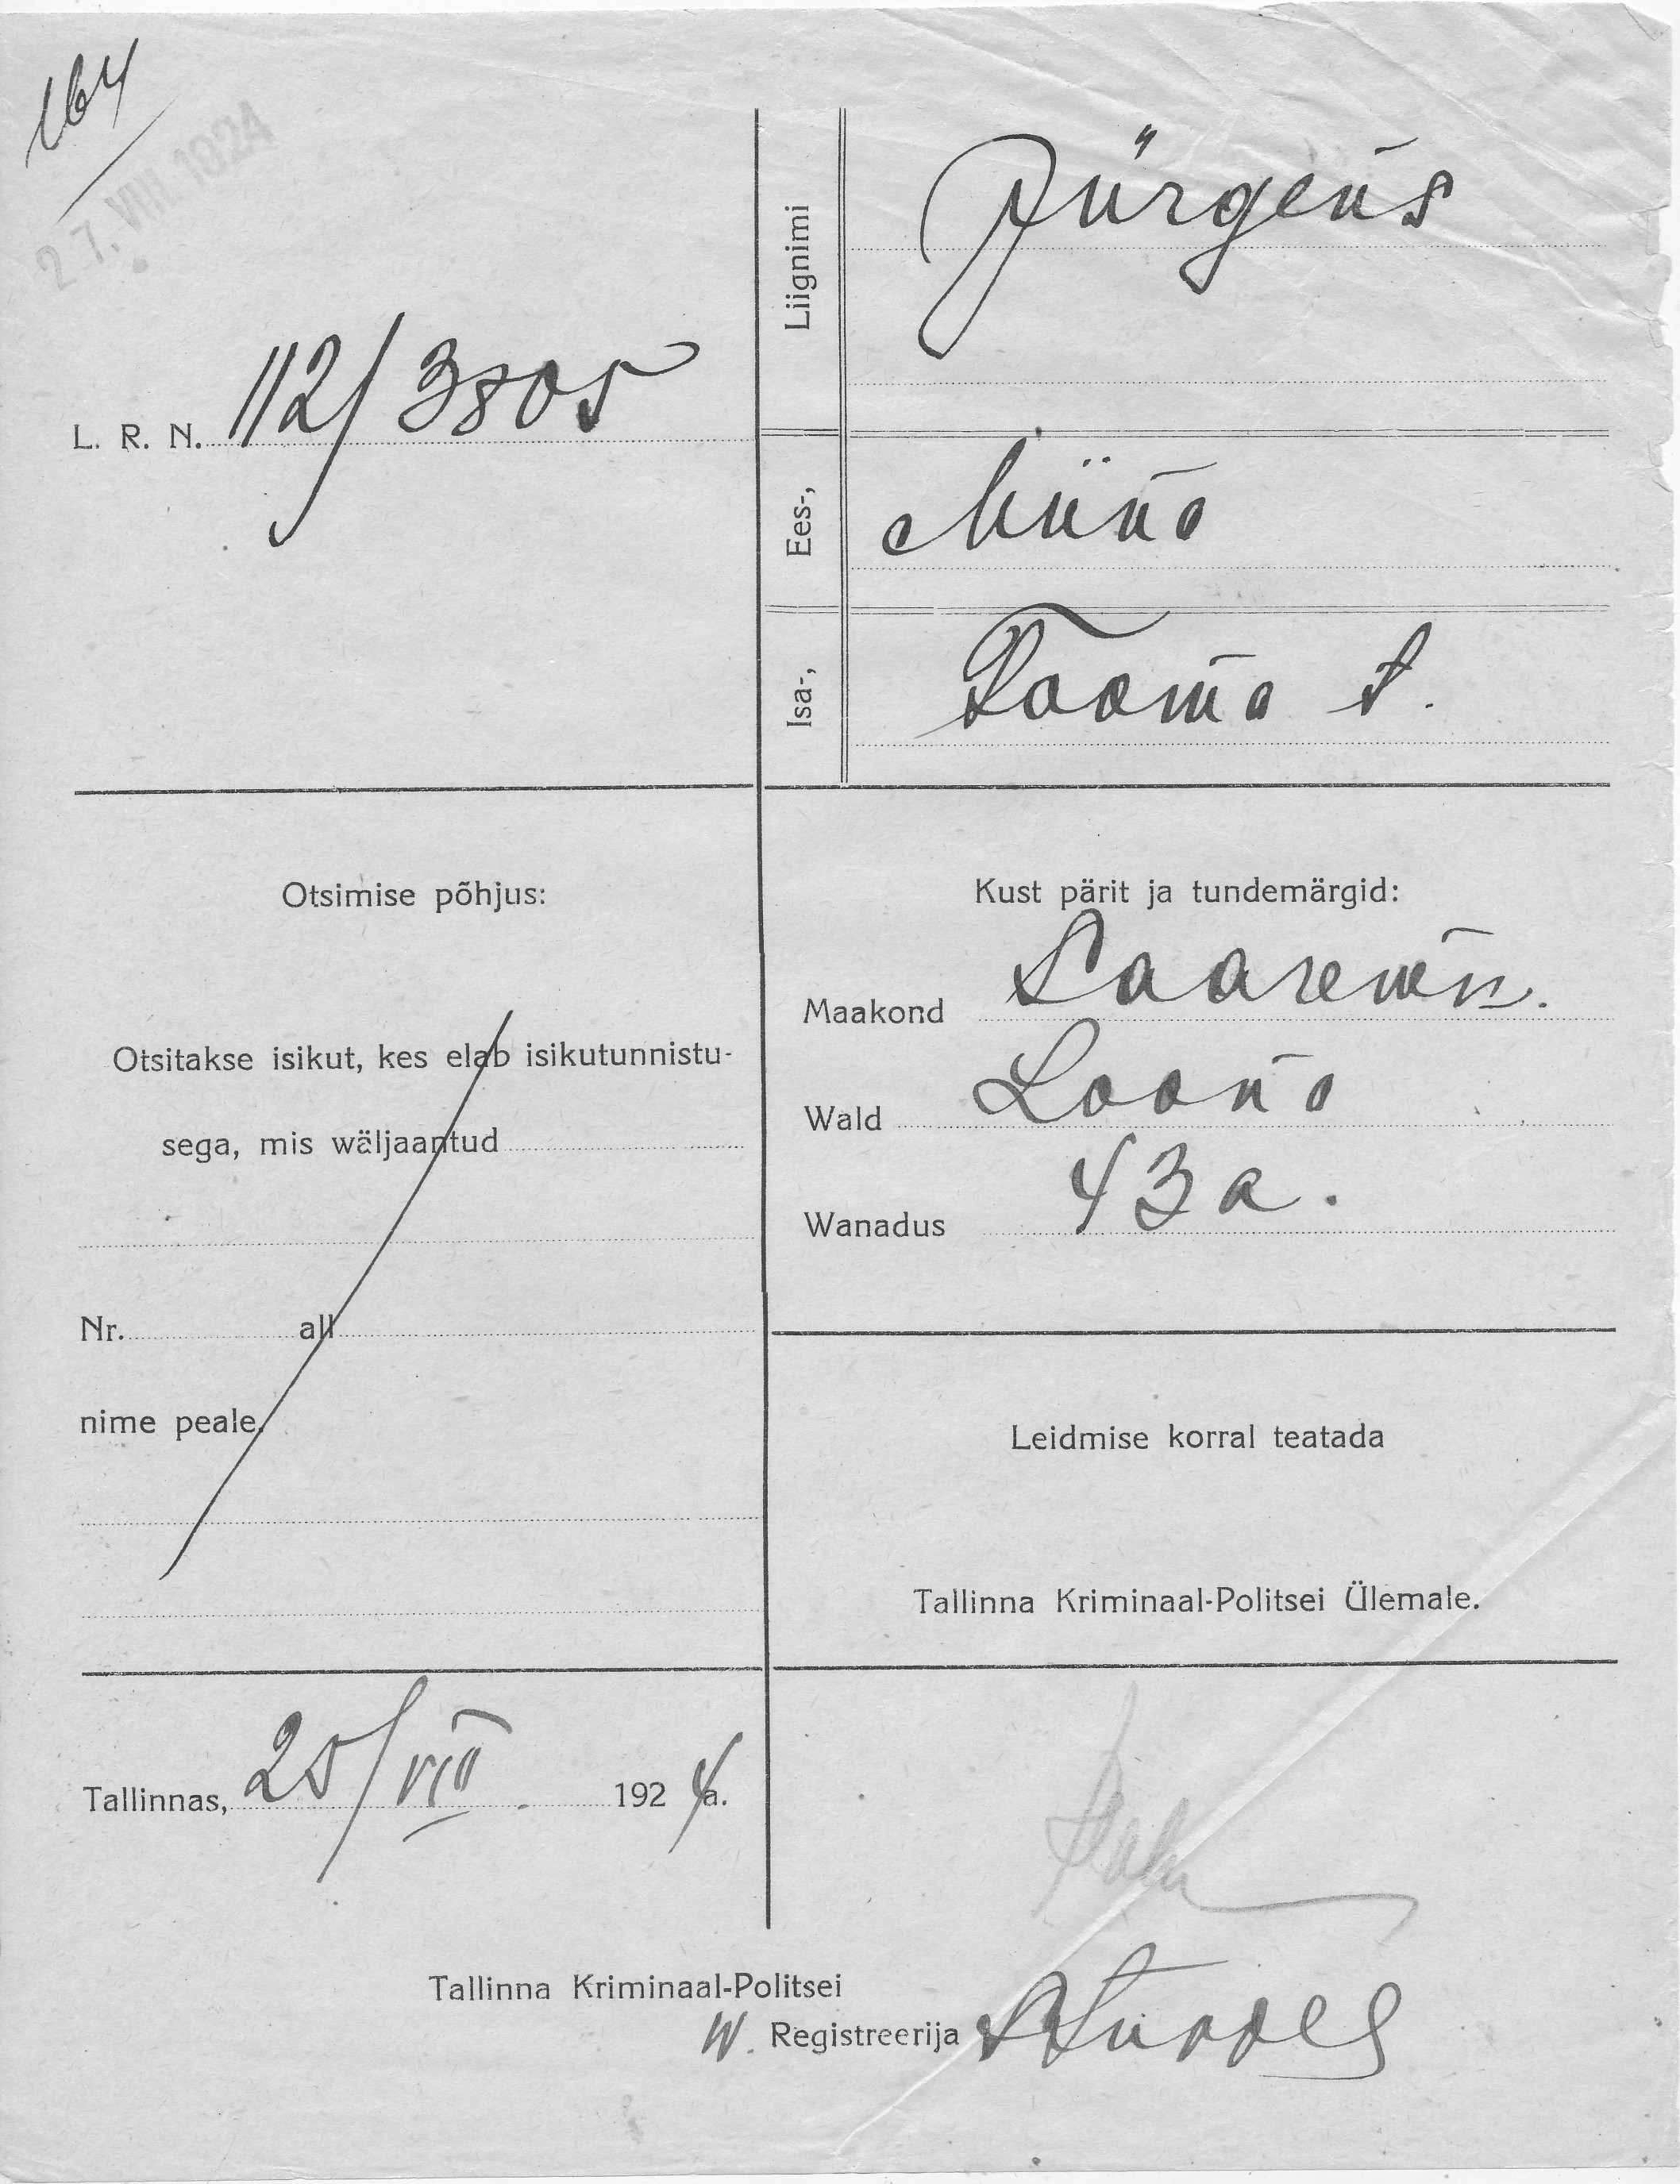 164
27. VIII 1924
L. R. N. 112/3805
Liignimi
Jürgens
Ees-,
Miina
Isa-,
Tooma t.
Otsimise põhjus:
Otsitakse isikut, kes elab isikutunnistu-
sega, mis wäljaantud
Nr. all
nime peale.
Kust pärit ja tundemärgid:
Maakond Saarem.
Wald Loona
Wanadus 43 a.
Leidmise korral teatada
Tallinna Kriminaal-Politsei Ülemale.
Tallinnas, 25/VIII 1924 a.
Tallinna Kriminaal-Politsei
W. Registreerija